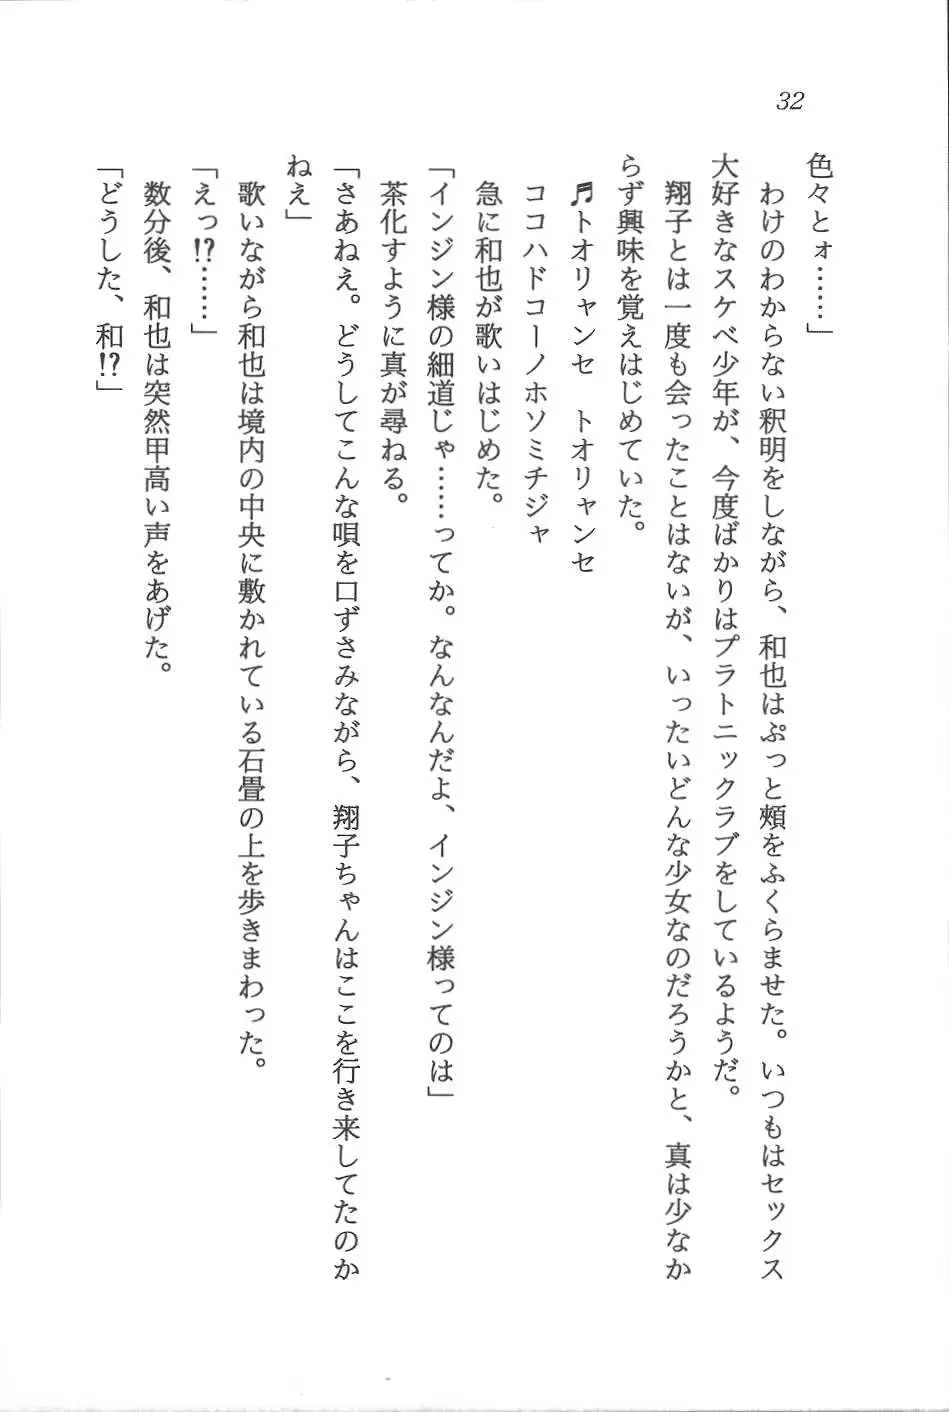 32
色々とォ……」
わけのわからない釈明をしながら、和也はぷっと頰をふくらませた。いつもはセックス
大好きなスケベ少年が、今度ばかりはプラトニックラブをしているようだ。
翔子とは一度も会ったことはないが、いったいどんな少女なのだろうかと、真は少なか
らず興味を覚えはじめていた。
♬トオリャンセ　トオリャンセ
ココハドコーノホソミチジャ
急に和也が歌いはじめた。
「インジン様の細道じゃ……ってか。なんなんだよ、インジン様ってのは」
茶化すように真が尋ねる。
「さあねえ。どうしてこんな唄を口ずさみながら、翔子ちゃんはここを行き来してたのか
ねえ」
歌いながら和也は境内の中央に敷かれている石畳の上を歩きまわった。
「えっ!?……」
数分後、和也は突然甲高い声をあげた。
「どうした、和!?」